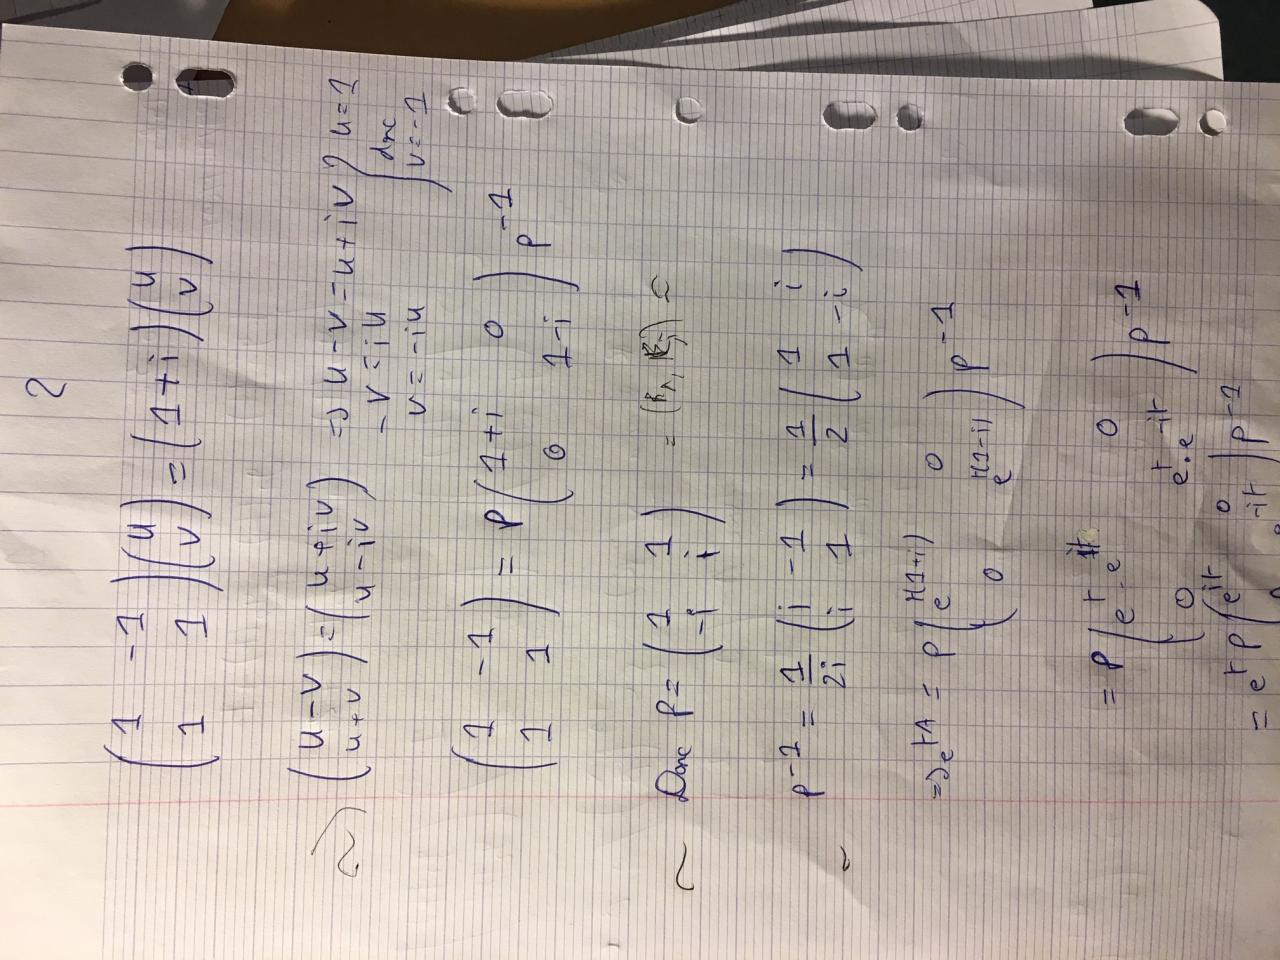 2
(1 -1
1 1)(u
v) = (1+i)(u
v)
(u-v
u+v) = (u+iv
u-iv) => u-v=u+iv } u=1
-v=iu donc
v=-iu v=-1
(1 -1
1 1) = P(1+i 0
0 1-i) P^-1
Donc P= (1 1
-i i) =
P^-1 = 1/2i (i -1
i 1) = 1/2 (1 i
1 -i)
=> e^tA = P(e^t(1+i) 0
0 e^t(1-i)) P^-1
= P(e^t.e^it 0
0 e^t.e^-it) P^-1
= e^t P(e^it 0
0 e^-it) P^-1